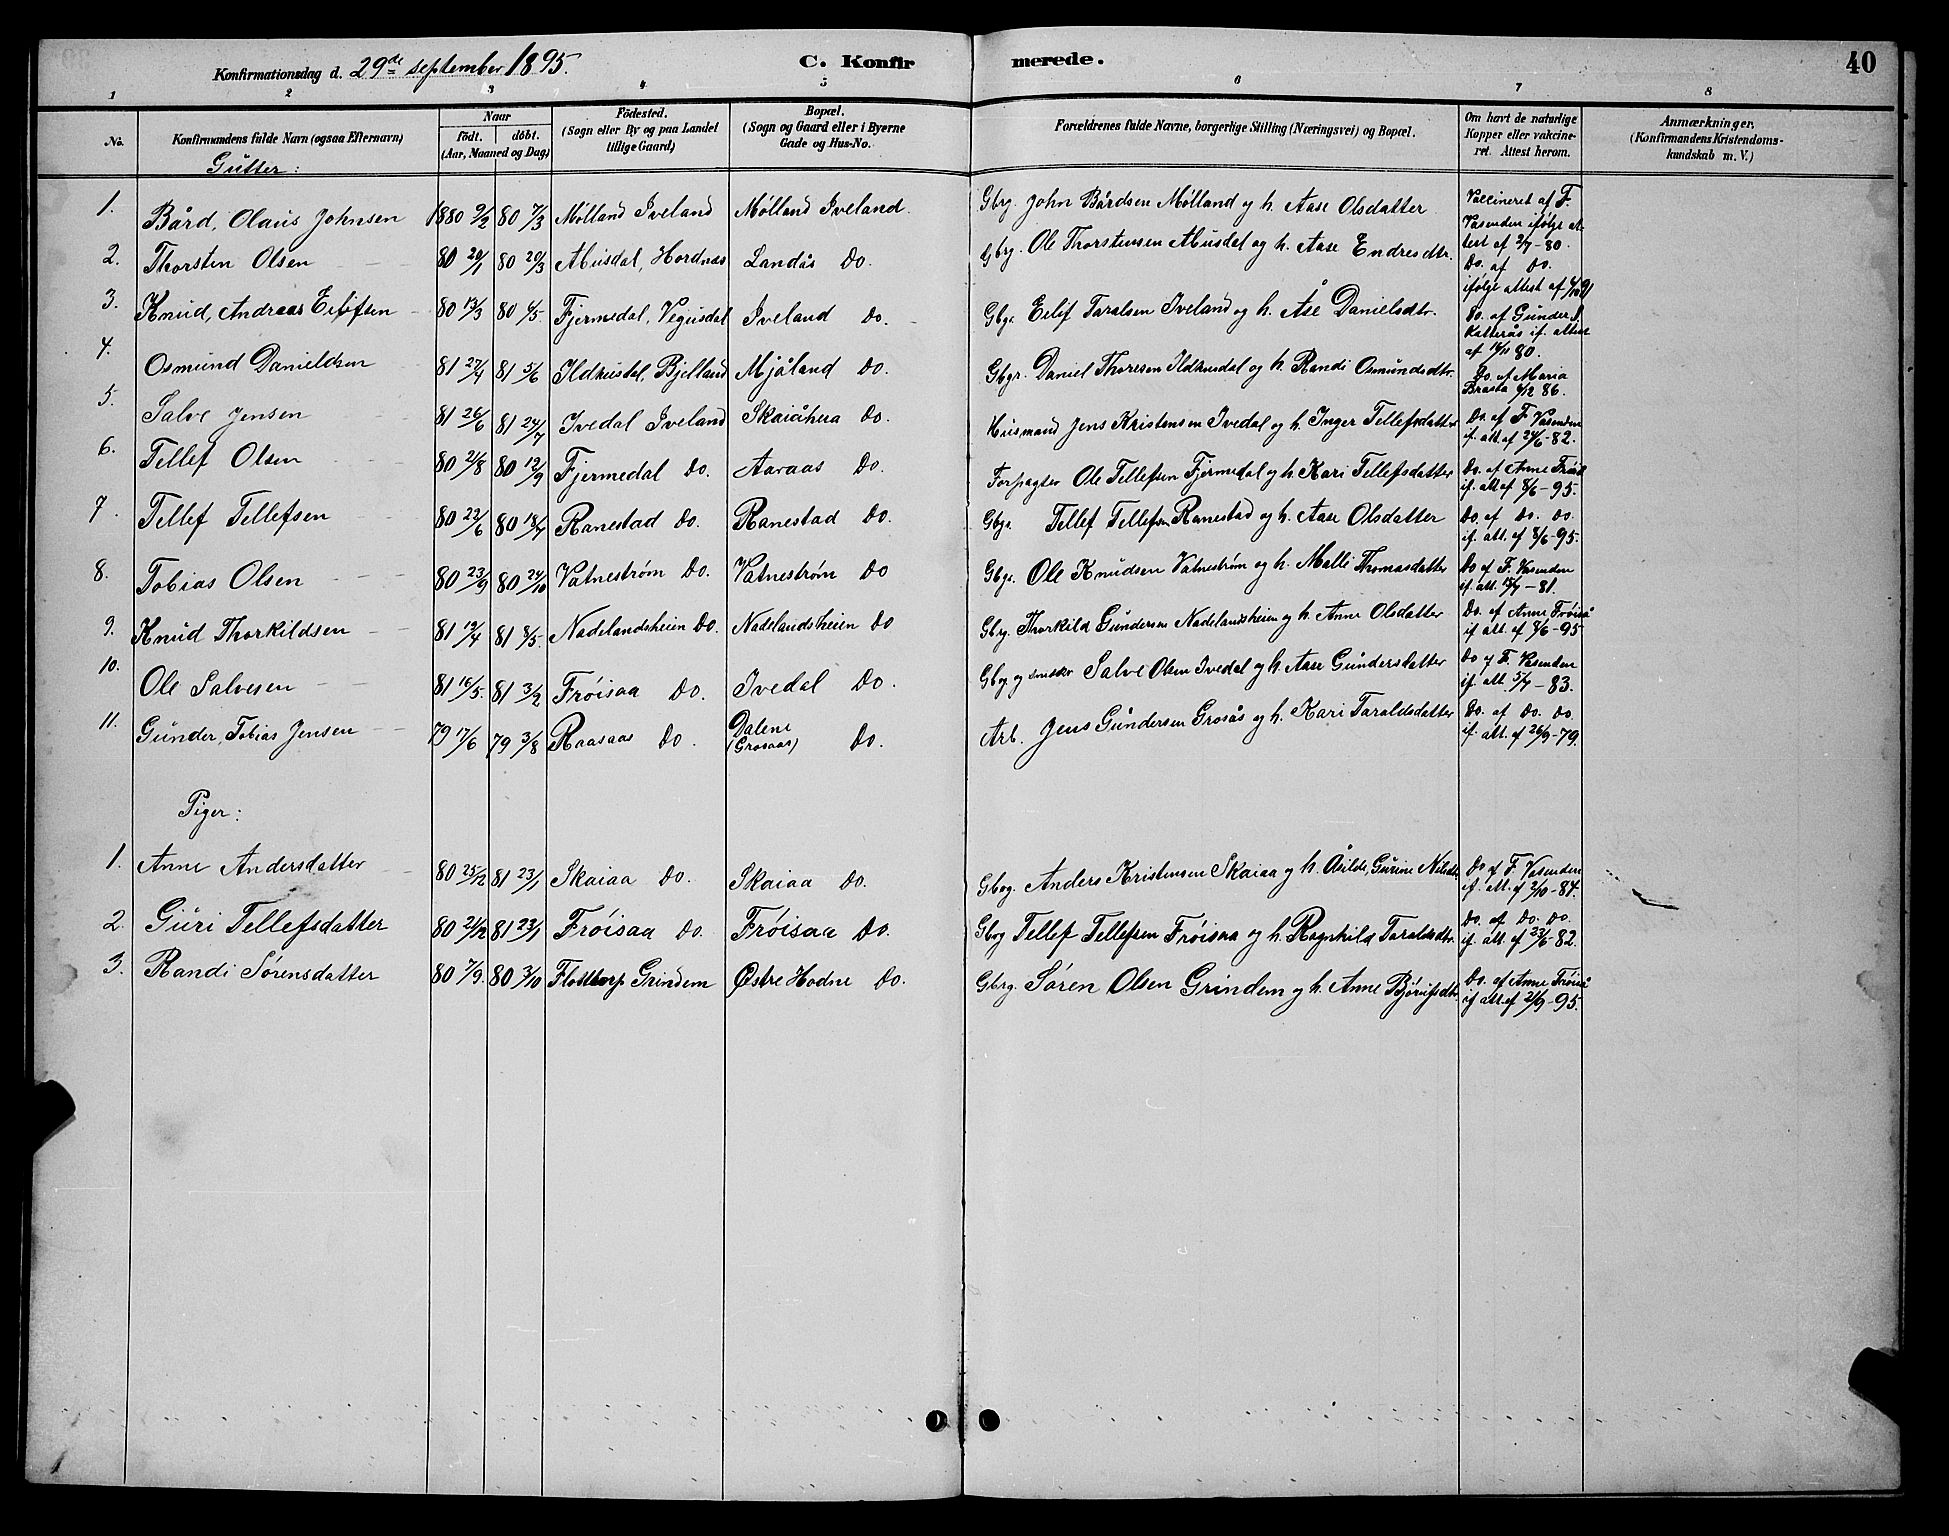 Konfirmationsdag d. 29de september 1895. C. Konfirmerede. 40
1 2 3 4 5 6 7 8
No. Konfirmandens fulde Navn (ogsaa Efternavn) Naar født. døbt. (Aar, Maaned og Dag) Fødested. (Sogn eller By og paa Landet tillige Gaard) Bopæl. (Sogn og Gaard eller i Byerne Gade og Hus-No. Forældrenes fulde Navne, borgerlige Stilling (Næringsvei) og Bopæl. Om havt de naturlige Kopper eller vakcineret. Attest herom. Anmærkninger. (Konfirmandens Kristendomskundskab m. V.)
Gutter:
1. Bård, Olaus Johnsen 1880 9/2 80 7/3 Mølland Iveland Mølland Iveland. Gbrg. John Bårdsen Mølland og h. Aase Olsdatter Vaccineret af F. Vasenden ifølge attest af 2/7-80.
2. Thorsten Olsen 80 20/1 80 20/3 Ausdal, Hordnæs Landås Do. Gbrg. Ole Thorstensen Ausdal og h. Aase Endresdtr. Do. af Do. ifølge attest af
3. Knud, Andreas Eilifsen 80 13/3 80 4/5 Fjermedal, Vegusdal Iveland Do. Gbgr. Eilif Taralsen Iveland og h. Åse Danielsdtr. Do. af Gunder Katterås if. attest af 14/11 80.
4. Osmund Danieldsen 81 27/4 81 5/6 Ildhusdal, Bjelland Mjåland Do. Gbgr. Daniel Thoresen Ildhusdal og h. Randi Osmundsdtr. Do. af Maria Braata 4/12 86.
5. Salve Jensen 81 26/6 81 24/7 Ivedal Iveland Skaiåheia Do. Husmand Jens Kristensen Ivedal og h. Inger Tellefsdatter Do af F. Vasenden if. att. af 24/6-82.
6. Tellef Olsen 80 21/8 80 12/9 Fjermedal Do. Aaraas Do. Forpagter Ole Tellefsen Fjermedal og h. Kari Tellefsdatter Do. af Anne Frøiså if. att af 8/6-95.
7. Tellef Tellefsen 80 22/6 80 18/7 Ranestad Do. Ranestad Do. Gbgr. Tellef Tellefsen Ranestad og h. Aase Olsdatter Do. af Do. Do. if. att. af 8/6-95.
8. Tobias Olsen 80 23/9 80 24/10 Vatnestrøm Do. Vatnestrøm Do Gbgr. Ole Knudsen Vatnestrøm og h. Malli Thomasdatter Do af F. Vasenden if. att. 13/7-81.
9. Knud Thorkildsen 81 12/4 81 8/5. Nadelandsheien Do. Nadelandsheien Do Gbrg. Thorkild Gundersen Nadelandsheien og h. Anne Olsdatter Do. af Anne Frøiså if att. af 8/6-95
10. Ole Salvesen 81 16/5. 81 3/2 Frøisaa Do. Ivedal Do. Gbrg og snedker Salve Olsen Ivedal og h. Aase Gundersdatter Do af F. Vasenden if. att. 5/7-83.
11. Gunder, Tobias Jensen 79 17/6 79 3/8 Raasaas Do. Dalene (Grosaas) Do. Arb. Jens Gundersen Grosås og h. Kari Taraldsdatter Do. af Do. Do. if. att. af 26/9-79.
Piger:
1. Anne Andersdatter 80 25/12 81 23/1 Skaiaa Do. Skaiaa Do. Gbrg. Anders Kristensen Skaiaa og h. Åsilde, Gurine Nilsdtr Do af F. Vasenden if. att. af 2/10-84.
2. Guri Tellefsdatter 80 21/12 81 23/1 Frøisaa Do. Frøisaa Do. Gbrg Tellef Tellefsen Frøisaa og h. Ragnhild Taraldsdtr. Do. af Do. Do. if. att. af 23/6-82.
3. Randi Sørensdatter 80 7/9. 80 3/10 Flottorp Grindem Østre Hodne Do. Gbrg. Søren Olsen Grindem og h. Anne Bjørulfsdtr Do. af Anne Frøiså if att. af 21/9-95.